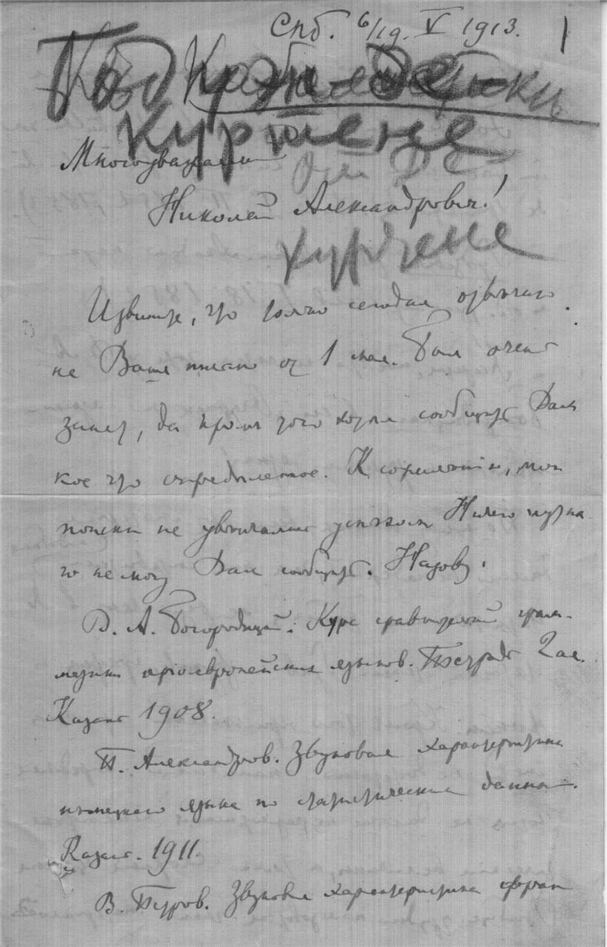 Спб. 6/19. V 1913.
Бодуэн-де-
Куртене
Многоуважаемый
Бодуэн Де
Николай Александрович!
Куртене
Извините, что только сегодня отвечаю
на Ваше письмо от 1 мая. Был очень
занят, да кроме того хотел сообщить Вам
кое что определенное. К сожалению, мои
поиски не увенчались успехом. Ничего нужна-
го не могу Вам сообщить. Назову.
В. А. Богородицкий. Курс сравнительной грам-
матики ариоевропейских языков.
Казань 1908.
П. Александров. Звуковая характеристика
немецкаго языка по статистическим данным.
Казань. 1911.
В. Звуковая характеристика фран